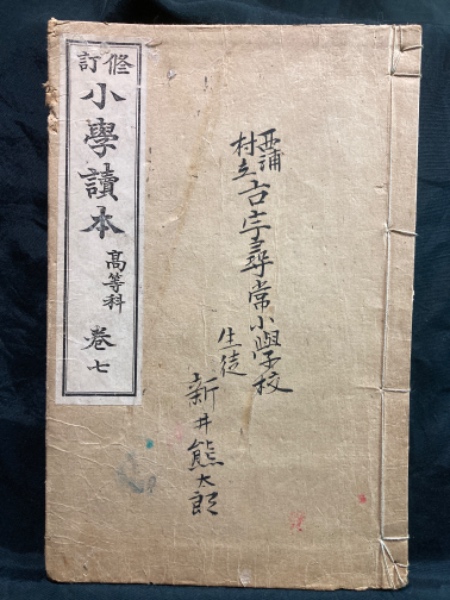 修訂
小學讀本
高等科
卷七
西浦
村立
古宇尋常小學校
生徒
新井熊太郎